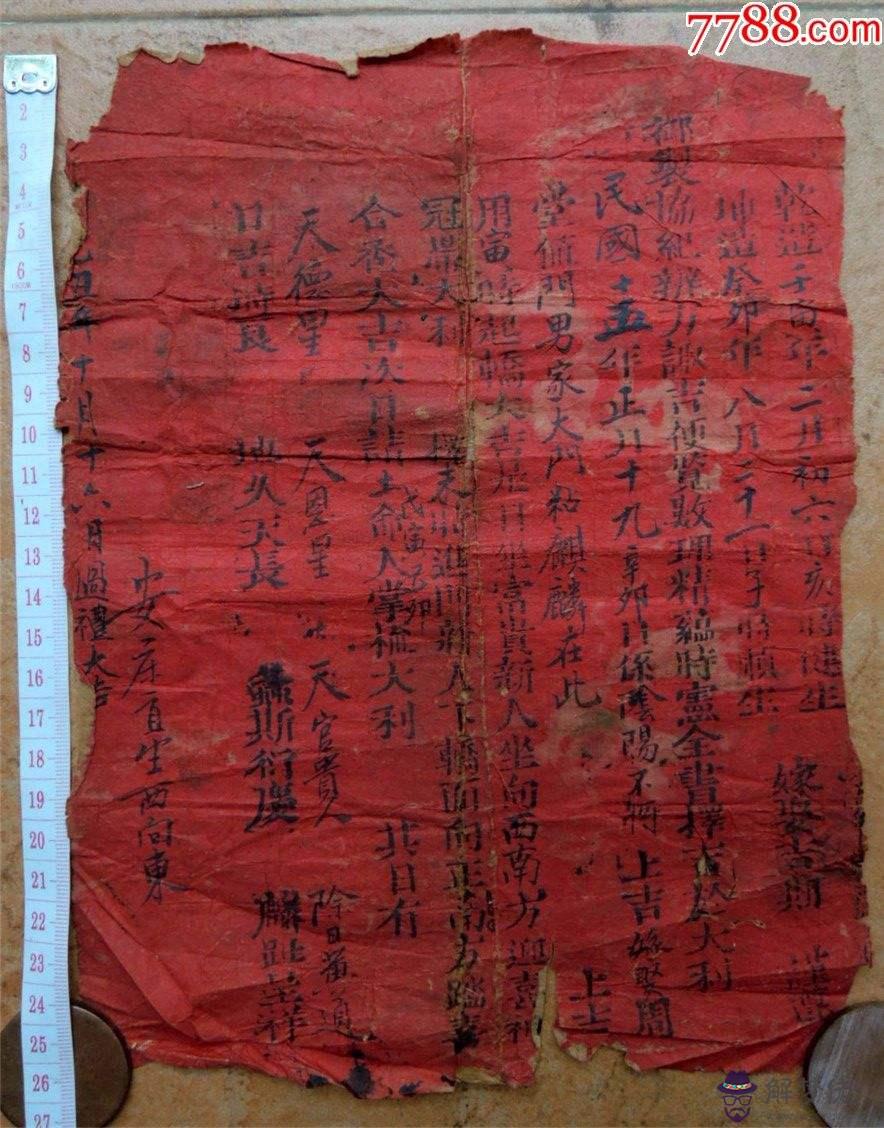 7788.com
乾造壬寅年二月初六日亥時建生 嫁娶吉期 謹
坤造癸卯年八月二十一日子時瑞生
御製協紀辦方諏吉便覽數理精蘊時憲全書擇吉於大利
民國十五年正月十九辛卯日係陰陽不將上吉嫁娶周
堂值門男家大門粘麒麟在此 上吉
用寅時起轎大吉是日繼富貴新人坐向西南方迎喜神
冠帶大利 未時進門新人下轎面向正南方踏喜
合巹大吉次日請土命人掌梳大利 其日有
戊寅 乙卯
天德星 天恩星 天官貴人 除日黃道
日吉時良 地久天長 螽斯衍慶 麟趾呈祥
安床宜坐西向東
乙丑年十月十六日過禮大吉
2
3
4
5
6
7
8
9
10
11
12
13
14
15
16
17
18
19
20
21
22
23
24
25
26
27